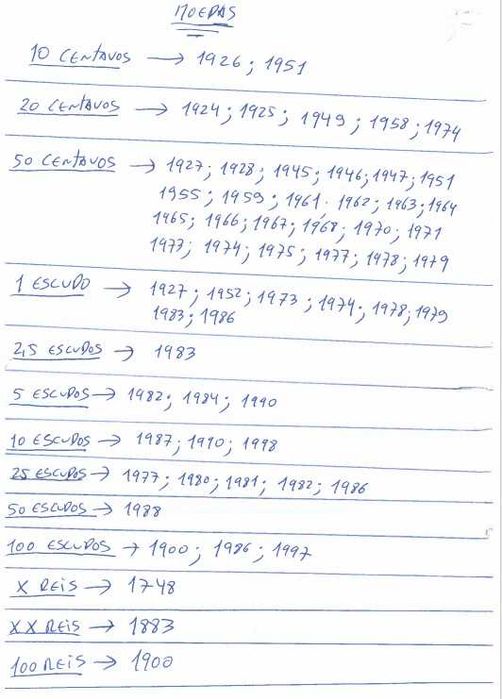 MOEDAS
10 CENTAVOS → 1926; 1951
20 CENTAVOS → 1924; 1925; 1949; 1958; 1974
50 CENTAVOS → 1927; 1928; 1945; 1946; 1947; 1951
1955; 1959; 1961; 1962; 1963; 1964
1965; 1966; 1967; 1968; 1970; 1971
1973; 1974; 1975; 1977; 1978; 1979
1 ESCUDO → 1927; 1952; 1973; 1974; 1978; 1979
1983; 1986
2,5 ESCUDOS → 1983
5 ESCUDOS → 1982; 1984; 1990
10 ESCUDOS → 1987; 1990; 1998
25 ESCUDOS → 1977; 1980; 1981; 1982; 1986
50 ESCUDOS → 1988
100 ESCUDOS → 1900; 1986; 1997
X REIS → 1748
XX REIS → 1883
100 REIS → 1900